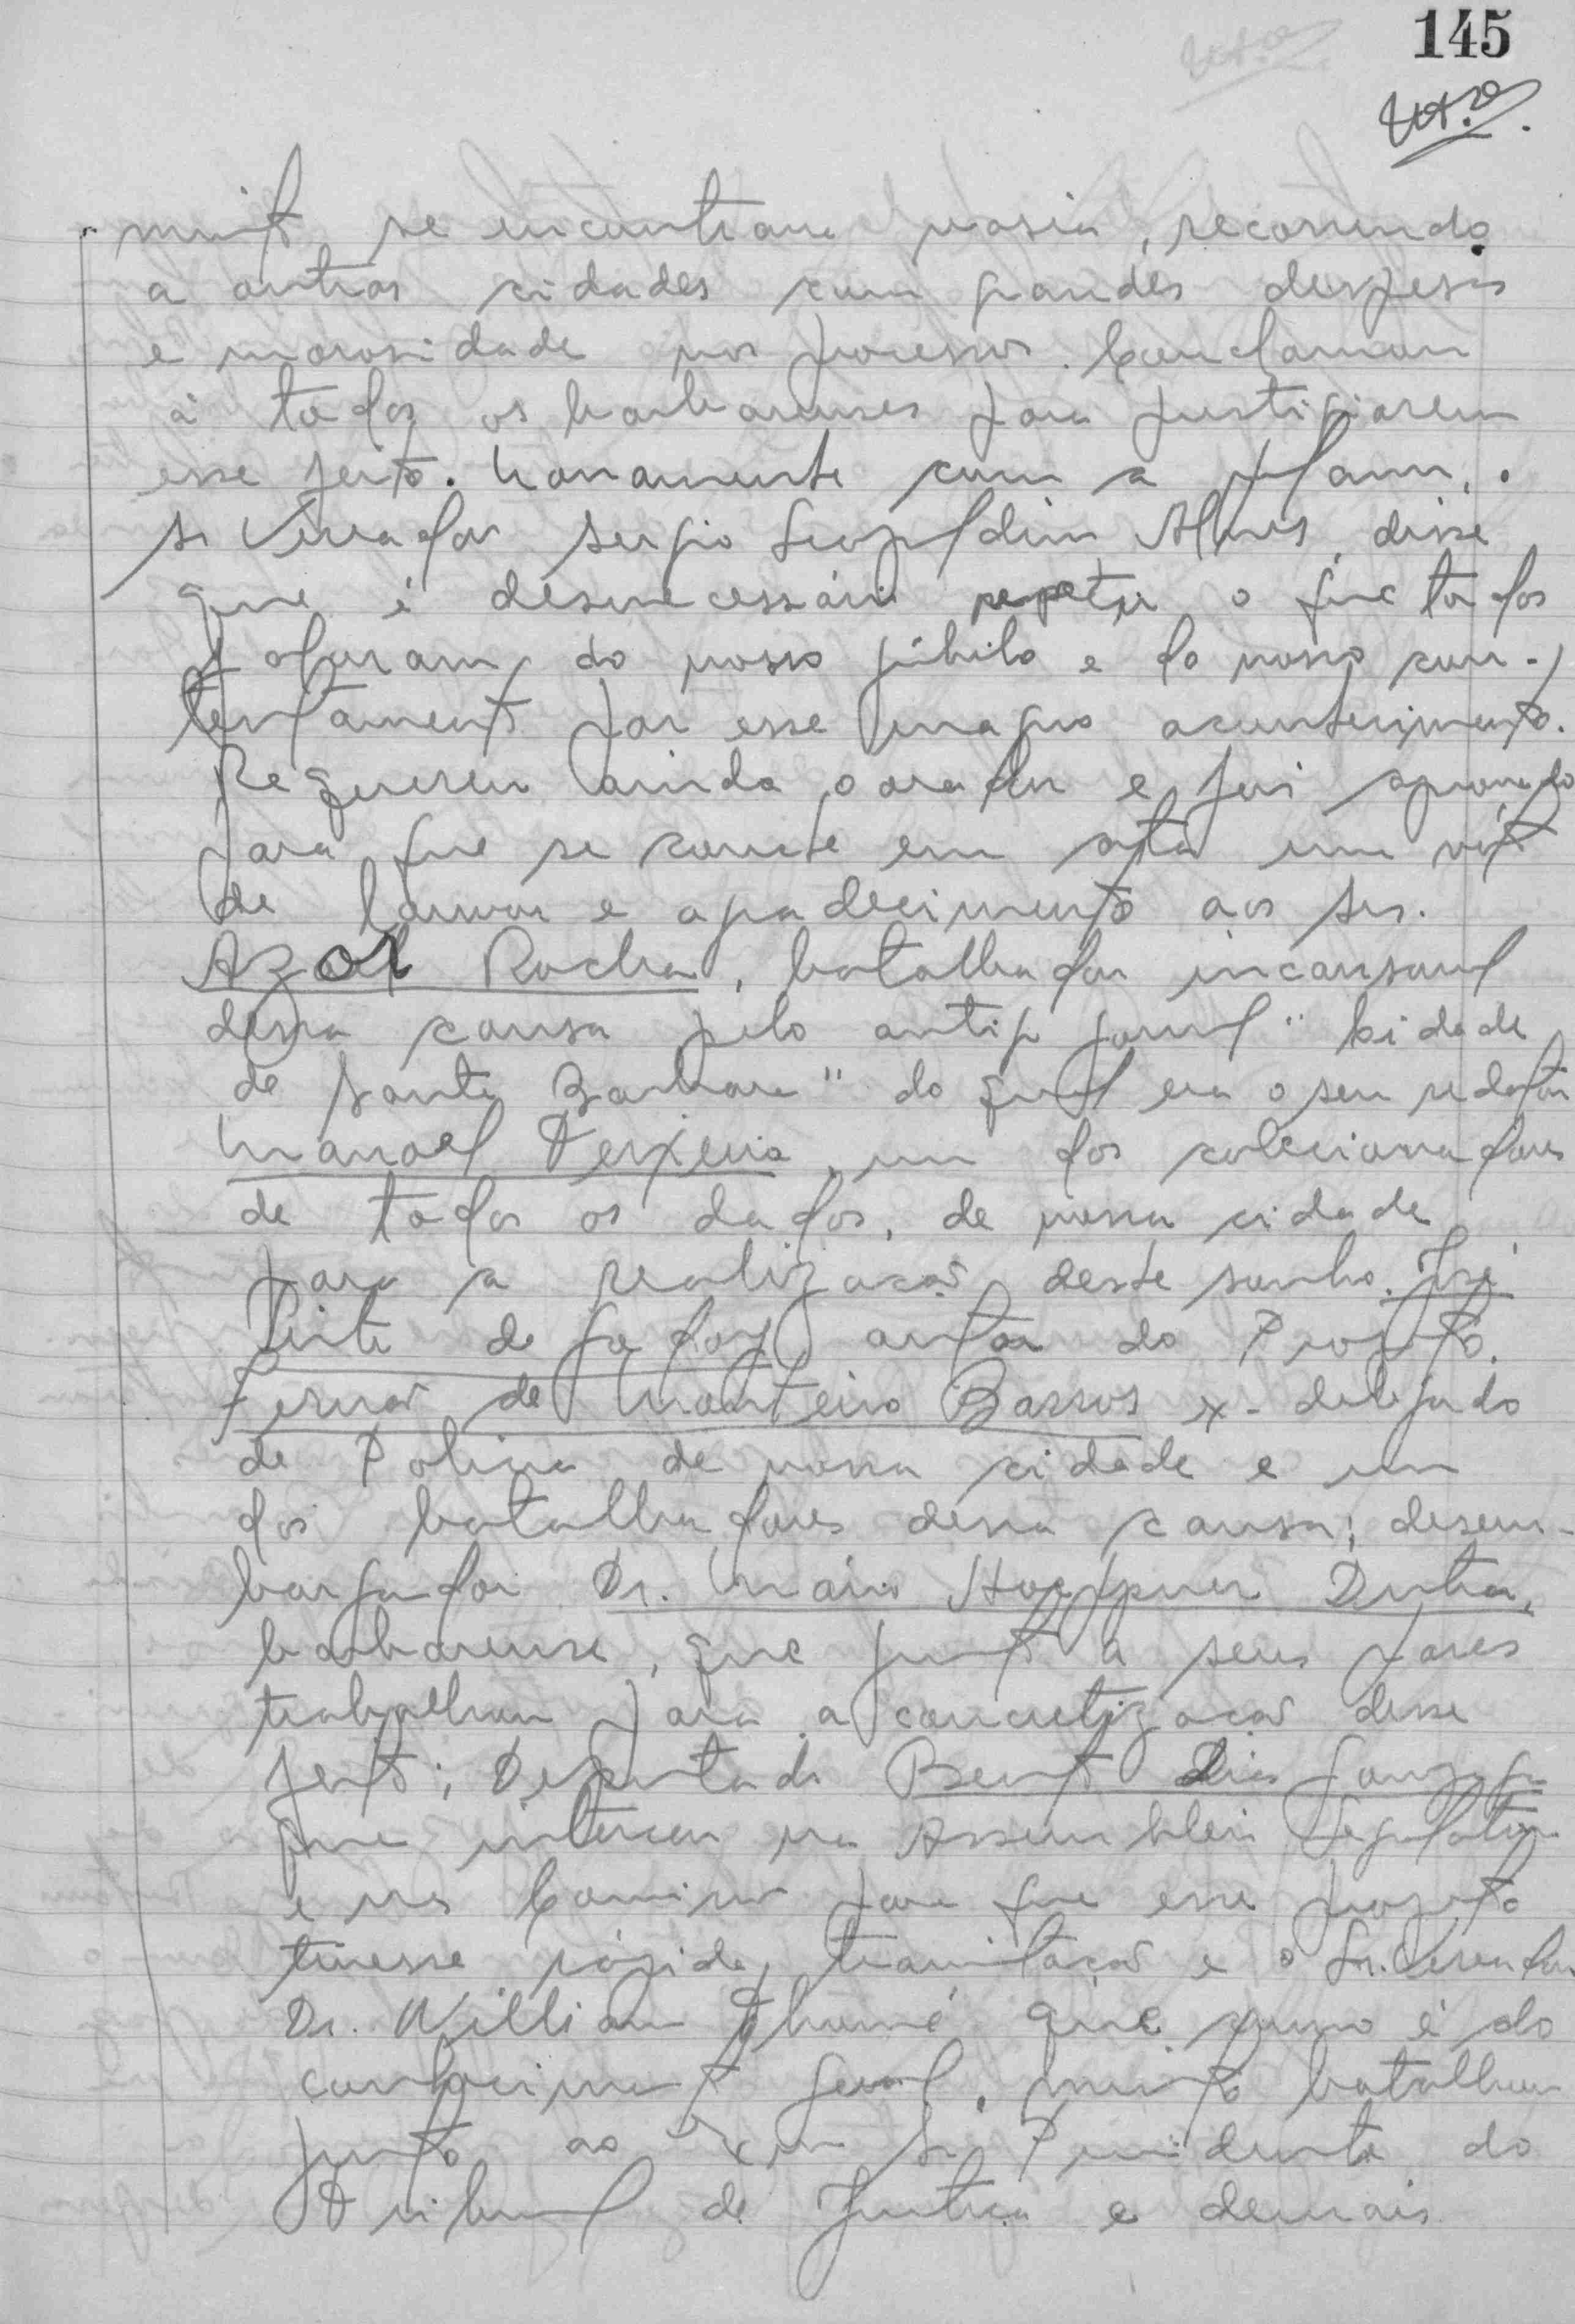 145
muito se encontrava vasia, recorrendo
a outras cidades com grandes despesas
e morosidade nos processos. Conclamou
à todos os barbarenses para festejarem
esse feito. Novamente com a palavra, o
sr Vereador Sergio Leopoldino Alves, disse
que é desnecessário repetir o que todos
falaram, do nosso júbilo e do nosso con-
tentamento por esse magno acontecimento.
Requereu ainda o orador e foi aprovado
para que se conste em ata um voto
de louvor e agradecimento aos srs.
Azol Rocha, batalhador incansavel
dessa causa pelo antigo jornal "Cidade
de Santa Barbara" do qual era o seu redator
Manoel Teixeira, um dos colecionadores
de todos os dados, de nossa cidade
para a realização deste sonho. José
Leite de Godoy autor do Projeto.
Fernão de Monteiro Barros ex-delegado
de Policia de nossa cidade e um
dos batalhadores dessa causa; desem-
bargador Dr. Mário Hoeppner Dutra,
barbarense, que junto a seus pares
trabalhou para a concretização desse
feito; Deputado Bento Dias Gonzaga
que interceu na Assembleia Legislativa
e nas Comissões para que esse projeto
tivesse rápida tramitação e o Sr. Vereador
Dr. William Thomé que como é do
conhecimento geral, muito batalhou
junto ao Exm Sr. Presidente do
Tribunal de Justiça e demais